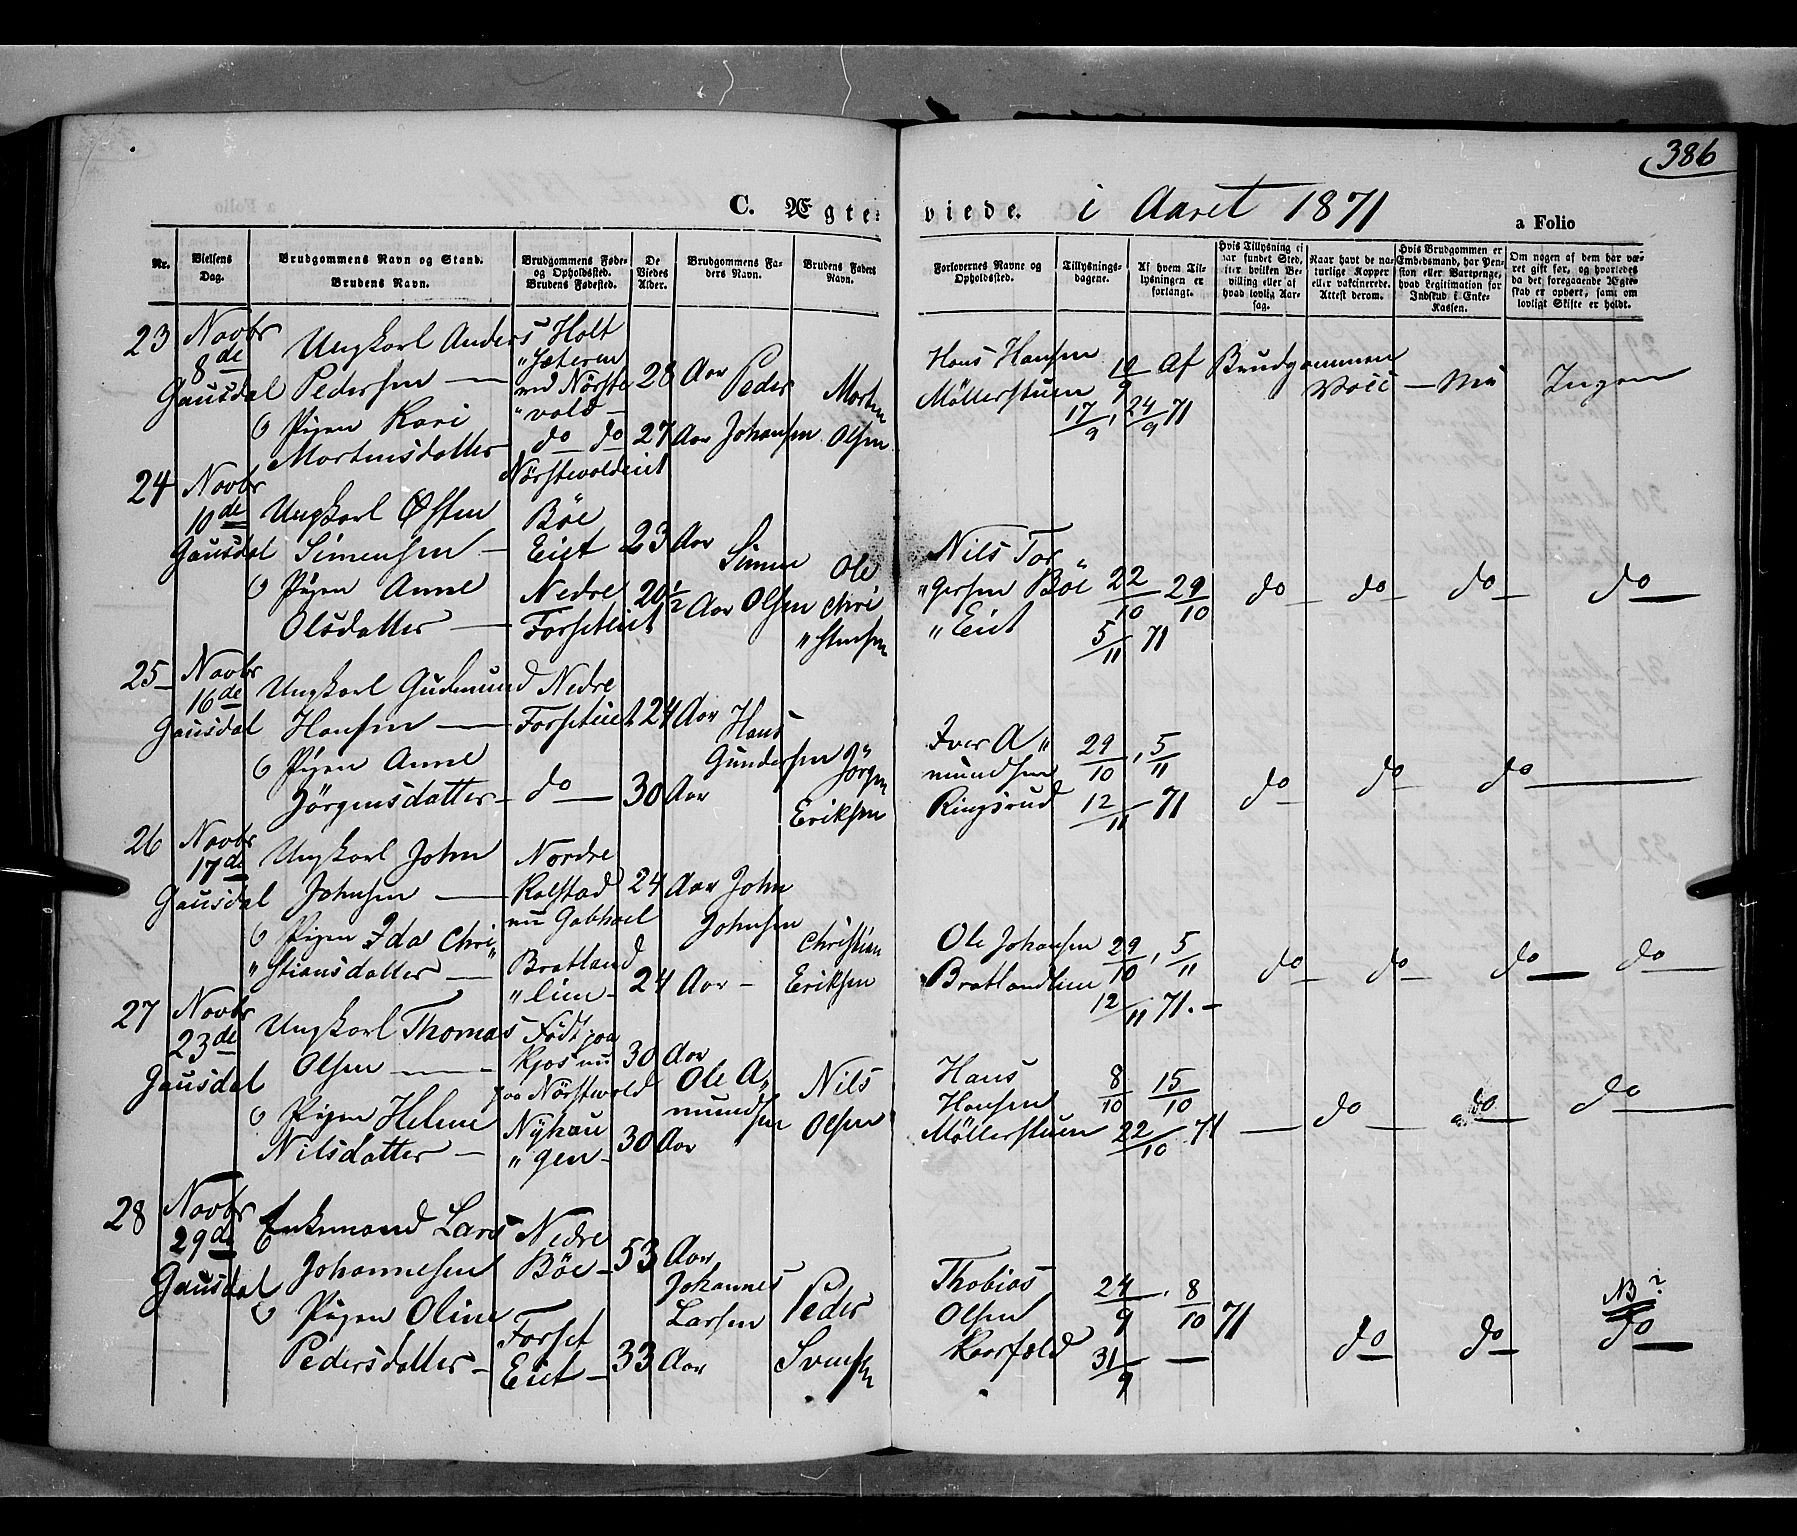 386
C. Ægteviede. i Aaret 1871
a Folio
Nr.
Vielsens Dag.
Brudgommens Navn og Stand. Brudens Navn.
Brudgommens Føde- og Opholdssted. Brudens Fødested.
De Viedes Alder.
Brudgommens Faders Navn.
Brudens Faders Navn.
Forlovernes Navne og Opholdssted.
Tillysningsdagene.
Af hvem Tillysningen er forlangt.
Hvis Tillysning ei har fundet Sted, efter hvilken Bevilling eller af hvad lovlig Aarsag.
Naar havt de naturlige Kopper eller vaksinerede. Attest derom.
Hvis Brudgommen er Embedsmand, har Pension eller Vartpenge, hvad Legitimation for Indskud i Enke-Kassen.
Om nogen af dem har været gift før, og hvorledes da det foregaaende Ægteskab er ophørt, samt om lovligt Skifte er holdt.
23 Novbr 8de Gausdal
Ungkarl Anders Pedersen —
Holt
28 Aar
Peder Johansen
& Pigen Kari Mortensdatter
do do
27 Aar
Morten Olsen
Hans Hansen Møllerstuen
10/9
17/9, 24/9 71
Af Brudgommen
Vacc —
Ingen
24 Novbr 10de Gausdal
Nørstevoldeiet
Ungkarl Østen Simensen —
Böe Eiet
23 Aar
Simen Olsen
& Pigen Anne Olsdatter —
Nedre Forseteiet
20 1/2 Aar
Ole Chri „stensen
Nils Tor „gersen Böe „Eiet
22/10 29/10
5/11 71
do — do — do — do —
25 Novbr 16de Gausdal
Ungkarl Gudmund Hansen —
Nedre Forseteiet
24 Aar
Hans Gundersen
& Pigen Anne Jørgensdatter —
do —
30 Aar
Jörgen Eriksen
Iver A„ mundsen Ringsrud
29/10, 5/11
12/11 71
do — do — do —
26 Novbr 17de Gausdal
Ungkarl John Johnsen —
Nordre Kalstad nu Gabhoel
24 Aar
John Johnsen
& Pigen Ida Chri„ „stiansdatter —
Bratland „lien —
24 Aar —
Christian Eriksen
Ole Johansen Bratlandlien
29/10, 5/11
12/11 71. —
do — do — do — do —
27 Novbr 23de Gausdal
Ungkarl Thomas Olsen —
Født paa Kjos nu paa Nörstevold
30 Aar
Ole A„ mundsen
& Pigen Helene Nilsdatter —
Nyhau „gen —
30 Aar
Nils Olsen
Hans Hansen Møllerstuen
8/10 15/10
22/10 71
— do — do — do —
28 Novbr 29de Gausdal
Enkemand Lars Johannesen
Nedre Böe —
53 Aar
Johannes Larsen
& Pigen Oline Pedersdatter —
Forset Eiet —
33 Aar
Peder Svensen
Thobias Olsen
24/9, 8/10 71
31/9 —
do — do —
NB?
do —